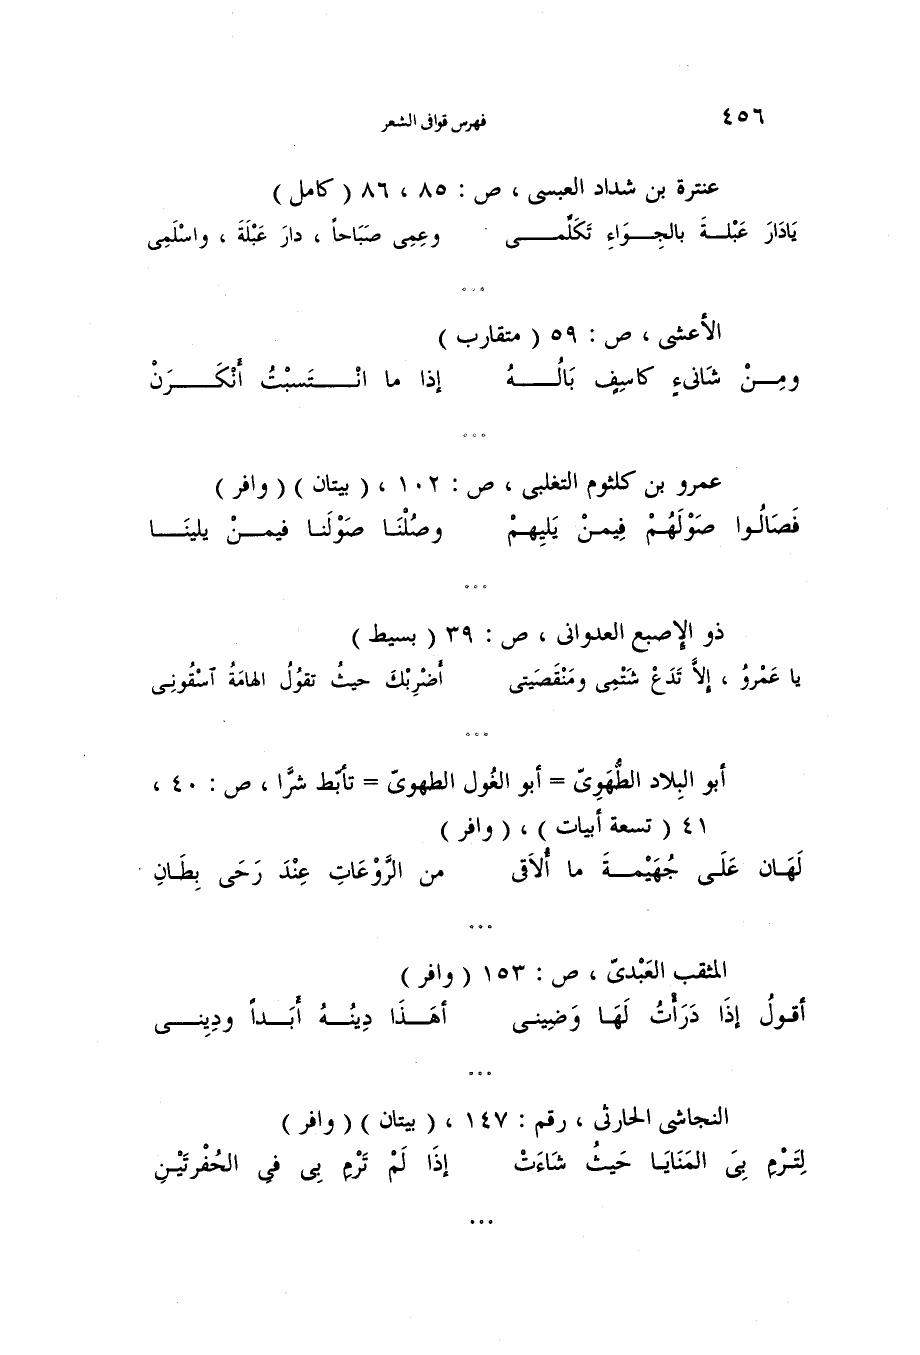 ٤٥٦
فهرس قوافى الشعر
عنترة بن شداد العبسى ، ص : ٨٥ ، ٨٦ ( كامل )
يَادَارَ عَبْلَةَ بالجِوَاءِ تَكَلَّمِى وعِمِى صَبَاحاً ، دارَ عَبْلَةَ ، واسْلَمِى
الأعشى ، ص : ٥٩ ( متقارب )
ومِنْ شَانىءٍ كاسِفٍ بَالُهُ إذا ما انْتَسَبْتُ أَنْكَرَنْ
عمرو بن كلثوم التغلبى ، ص : ١٠٢ ، ( بيتان ) ( وافر )
فَصَالُوا صَوْلَهُمْ فِيمنْ يَليِهمْ وصُلْنَا صَوْلَنا فيمنْ يلينَا
ذو الإصبع العدوانى ، ص : ٣٩ ( بسيط )
يا عَمْروُ ، إلاَّ تَدَعْ شَتْمِى ومَنْقَصَيتى أَضْرِبْكَ حيثُ تقوُلُ الهامَةُ آسْقُونِى
أبو البِلاد الطُّهَوِىّ = أبو الغُول الطهوىّ = تأبّط شرًّا ، ص : ٤٠ ،
٤١ ( تسعة أبيات ) ، ( وافر )
لَهَان عَلَى جُهَيْمةَ ما أُلاَقى من الرَّوْعَاتِ عِنْدَ رَحَى بِطَانِ
المثقب العَبْدىّ ، ص : ١٥٣ ( وافر )
أقولُ إذَا دَرَأْتُ لَهَا وَضِينى أهَذَا دِينُهُ أبَداً ودِينِى
النجاشى الحارثى ، رقم : ١٤٧ ، ( بيتان ) ( وافر )
لِتَرْمِ بِىَ المَنَايَا حَيثُ شَاءَتْ إذَا لَمْ تَرْمِ بِى فِي الحُفْرتَيْنِ